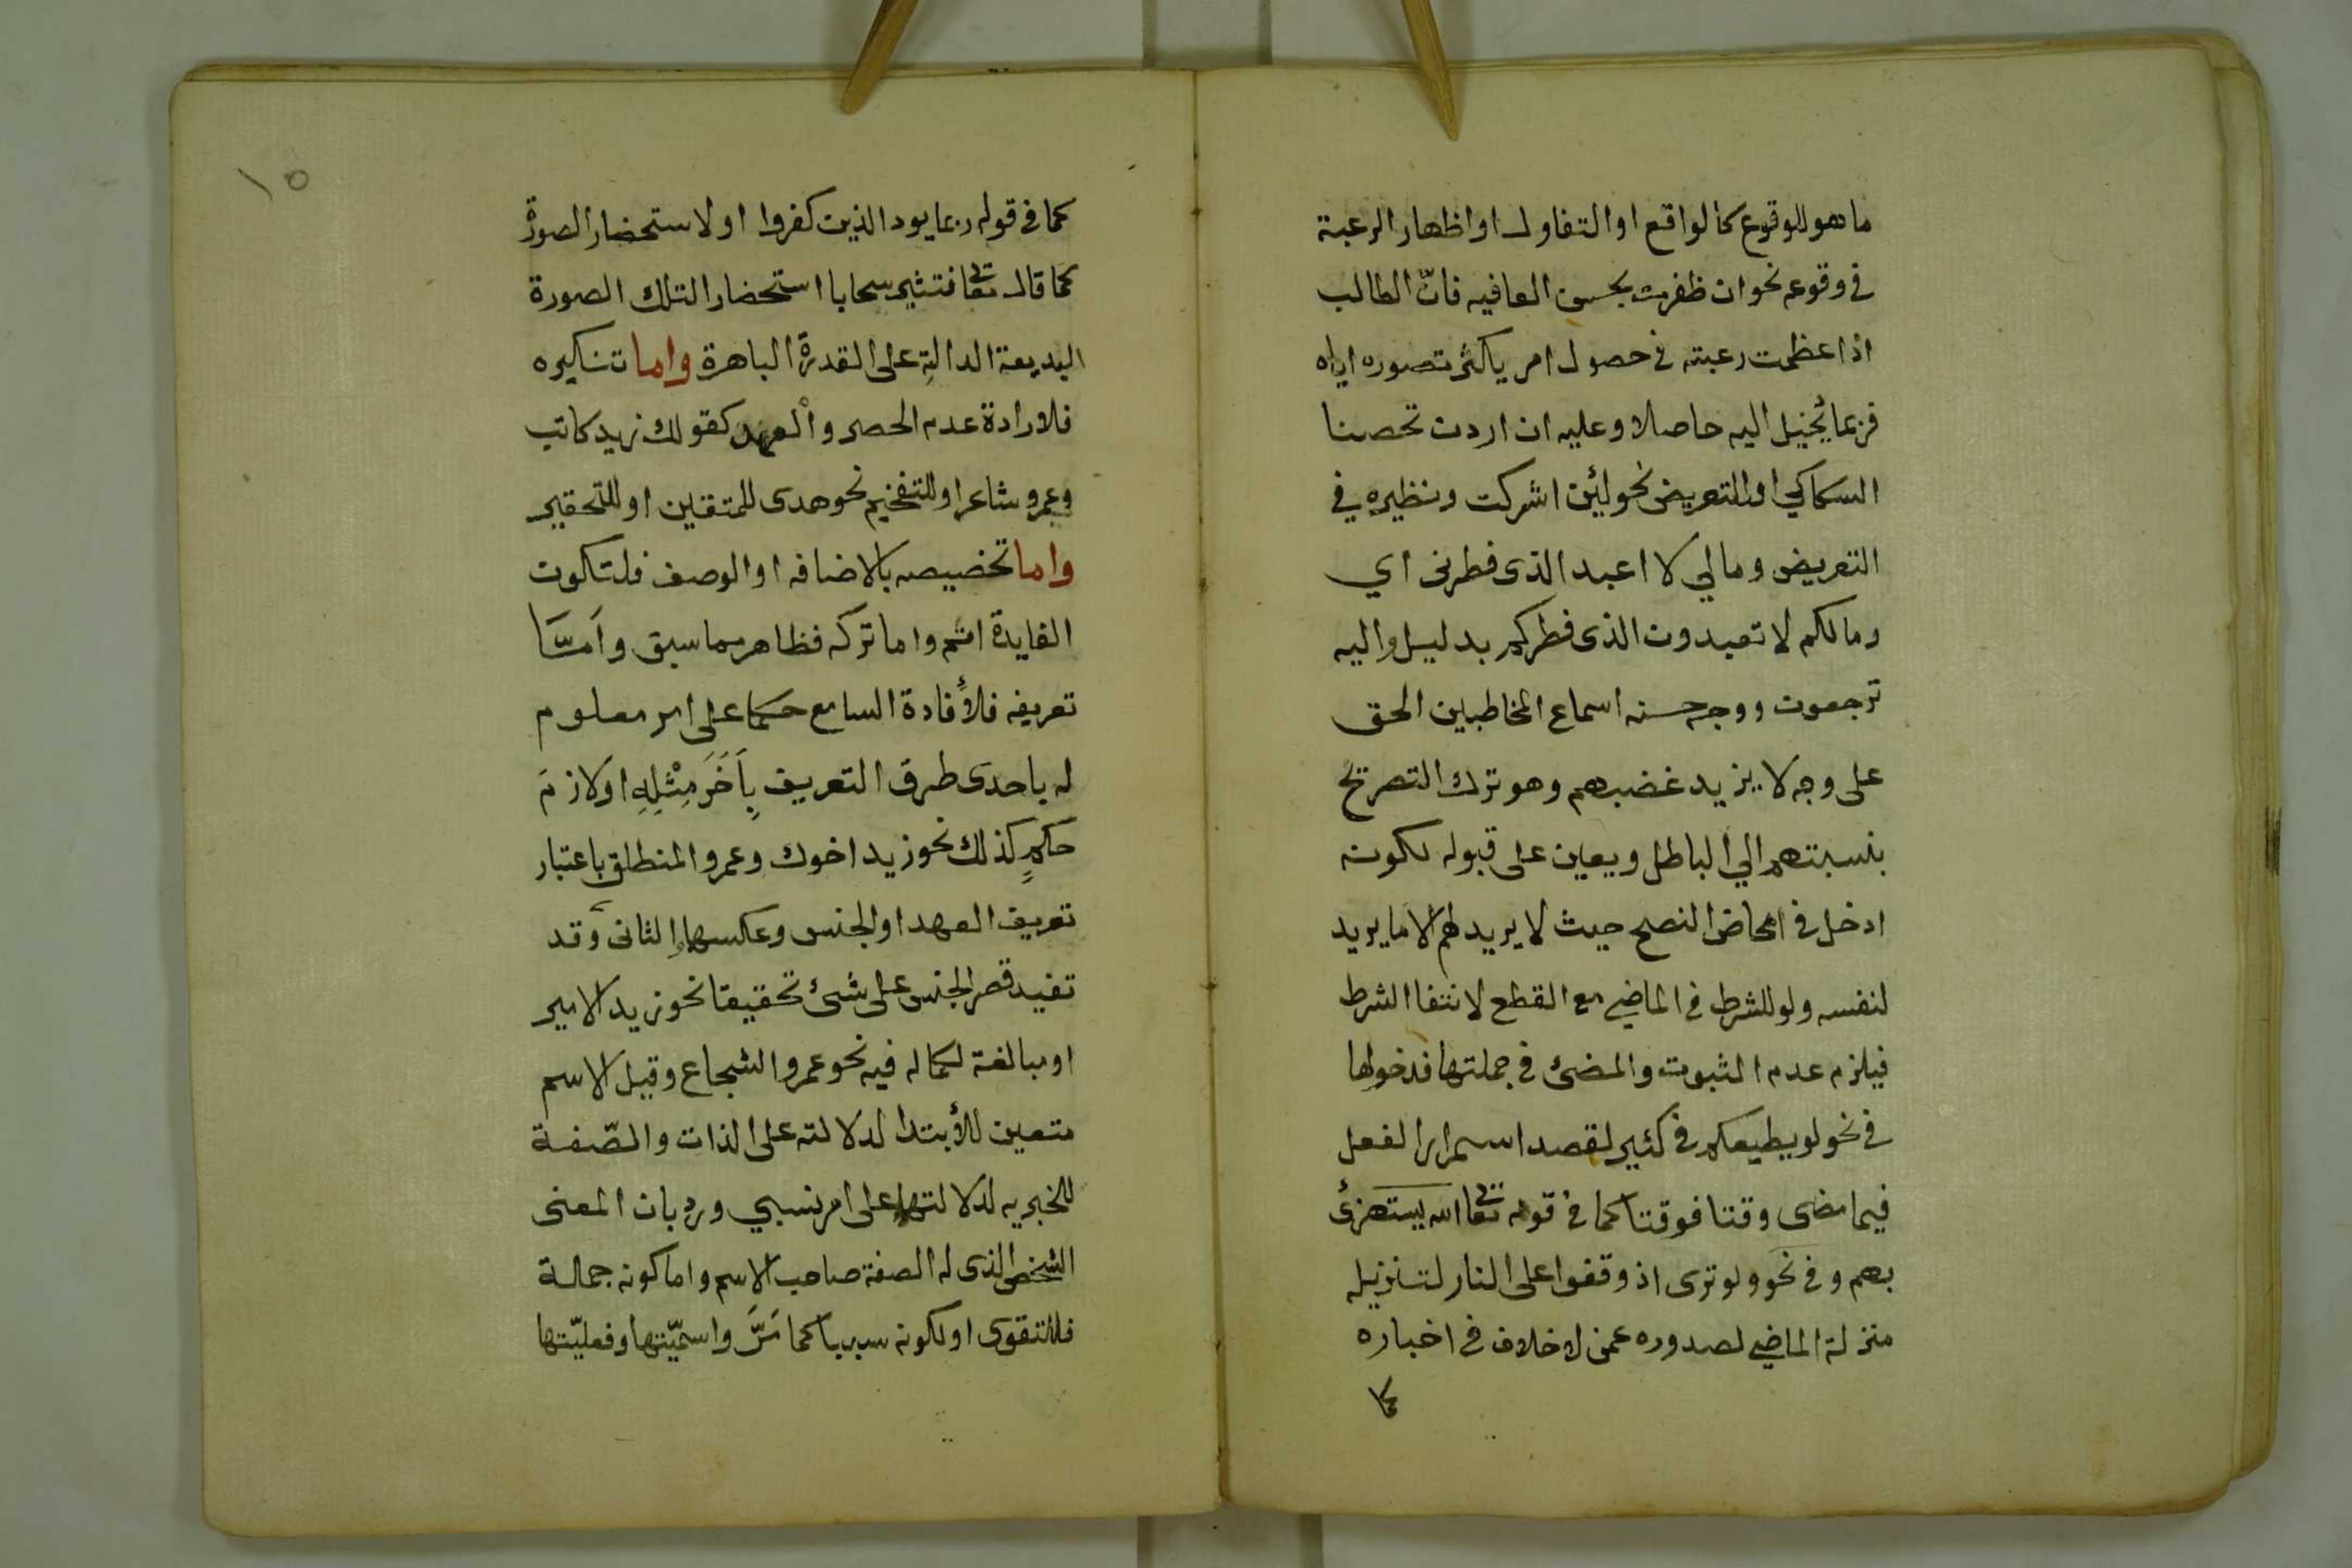 ما هو للوقوع كالواقع او التفاول او اظهار الرغبة
في وقوعه نحو ان ظفرت بحسن العافيه فانّ الطالب
اذا عظمت رغبته في حصول امر يا كثر تصوره اياه
فربما يخيل اليه حاصلا وعليه ان اردن تحصنا
السكاكي او للتعريض نحو لئن اشركت ونظيره في
التعريض ومالي لا اعبد الذى فطرنى اي
ومالكم لا تعبدون الذى فطركم بدليل واليه
ترجعون ووجه حسنه اسماع المخاطبين الحق
على وجه لا يزيد غضبهم وهو ترك التصريح
بنسبتهم الي الباطل ويعين على قبوله لكونه
ادخل في امحاض النصح حيث لا يريد لهم الا ما يريد
لنفسه ولو للشرط في الماضي مع القطع لانتفا الشرط
فيلزم عدم الثبوت والمضى في جملتها فدخولها
في نحو لو يطيعكم في كثير لقصد اسمرار الفعل
فيما مضى وقتا فوقتا كما في قوله تعا الله يستهزئ
بهم وفي نحو ولو ترى اذ وقفوا على النار لتنزيله
منزلة الماضي لصدوره عمن لا خلاف في اخباره
كما
١٥
كما في قوله ربما يود الذين كفروا او لاستحضار الصورة
كما قال تعا فتثير سحابا استحضار التلك الصورة
البديعة الدالةِ على القدرة الباهرة واما تنكيره
فلارادة عدم الحصر والعهد كقولك زيد كاتب
وعمرو شاعر او للتفخيم نحو هدى للمتقين او للتحقير
واما تخصيصه بالاضافه او الوصف فلتكون
الفايدة اتم واما تركه فظاهر مما سبق وَامَّا
تعريفه فلأفادة السامع حكما على امر معلوم
له باحدى طرق التعريف بِاَخَرَ مِثْلِهِ او لازمَ
حكمٍ كذلك نحو زيد اخوك وعمرو المنطلق باعتبار
تعريف العهد او الجنس وعكسها والثانى وقد
تفيد قصر الجنس على شئ تحقيقا نحو زيد الامير
او مبالغة لكماله فيه نحو عمرو الشجاع وقيل الاسم
متعين للأبتدا لدلالته على الذات والصّفة
للخبريه لدلالتها على امر نسبي ورد بان المعنى
الشخص الذى له الصفة صاحب الاسم واما كونه جملة
فللتقوى او لكونه سببيا كما مَرَّ واسميّتها وفعليّتها